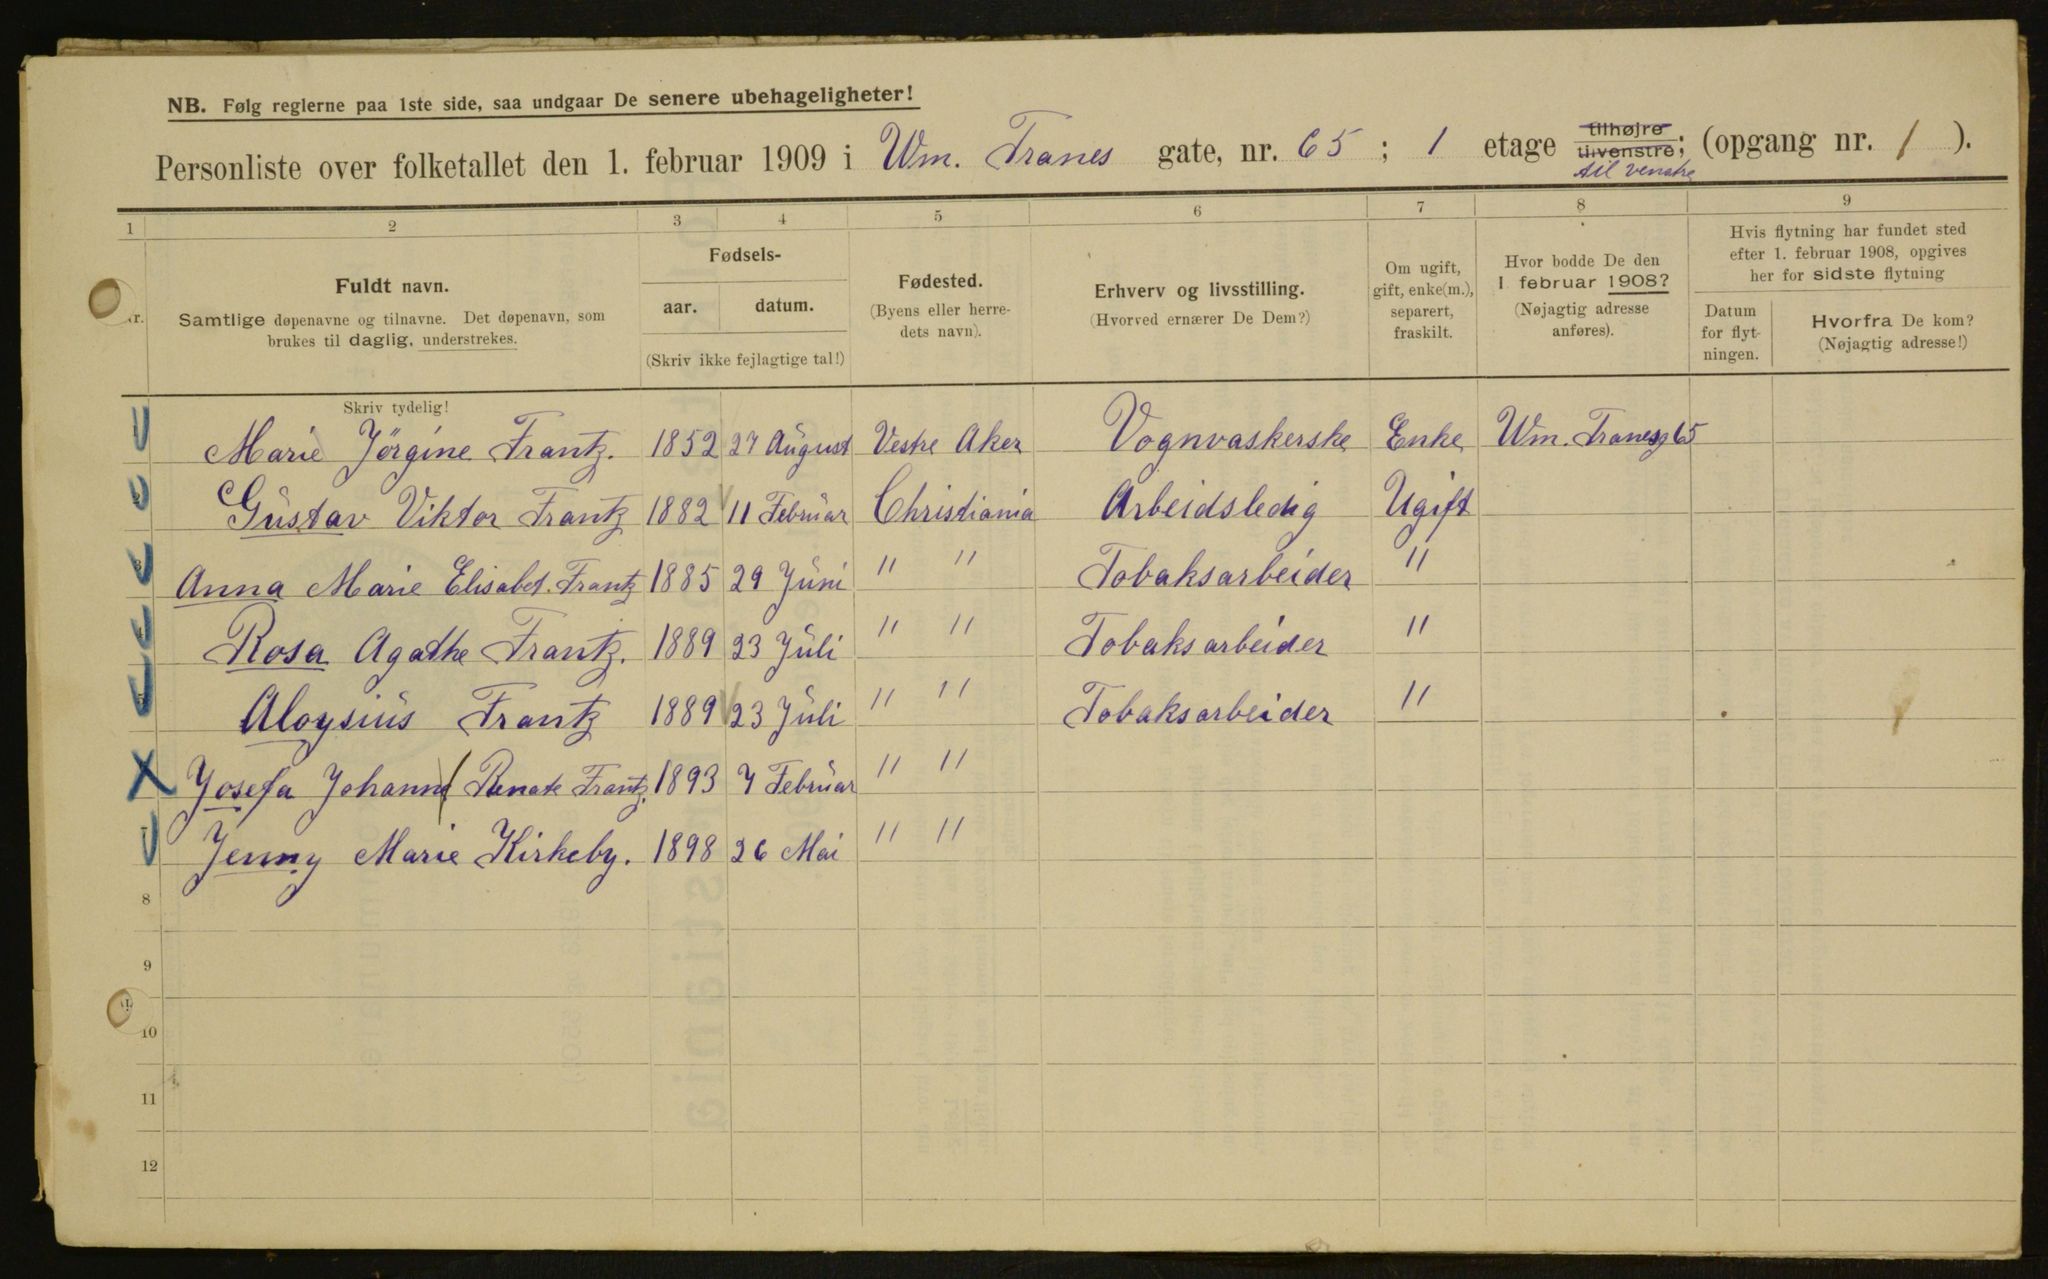 NB. Følg reglerne paa 1ste side, saa undgaar De senere ubehageligheter!
Personliste over folketallet den 1. februar 1909 i Wm. Tranes gate, nr. 65 ; 1 etage tilhøjre tilvenstre; (opgang nr. 1 ).
til venstre
1 2 3 4 5 6 7 8 9
Nr.
Fuldt navn.
Samtlige døpenavne og tilnavne. Det døpenavn, som
brukes til daglig, understrekes.
Fødsels-
aar. datum.
(Skriv ikke fejlagtige tal!)
Fødested.
(Byens eller herre-
dets navn).
Erhverv og livsstilling.
(Hvorved ernærer De Dem?)
Om ugift,
gift, enke(m.),
separert,
fraskilt.
Hvor bodde De den
1. februar 1908?
(Nøjagtig adresse
anføres).
Hvis flytning har fundet sted
efter 1. februar 1908, opgives
her for sidste flytning
Datum
for flyt-
ningen.
Hvorfra De kom?
(Nøjagtig adresse!)
Skriv tydelig!
Marie Jörgine Frantz. 1852 27 August Vestre Aker Vognvaskerske Enke Wm. Tranesg 65
Gustav Viktor Frantz 1882 11 Februar Christiania Arbeidsledig Ugift
Anna Marie Elisabet. Frantz 1885 29 Juni " " Tobaksarbeider "
Rosa Agathe Frantz. 1889 23 Juli " " Tobaksarbeider "
Aloysius Frantz 1889 23 Juli " " Tobaksarbeider "
Josefa Johanne Renate Frantz. 1893 7 Februar " "
Jenny Marie Kirkeby. 1898 26 Mai " "
8
9
10
11
12